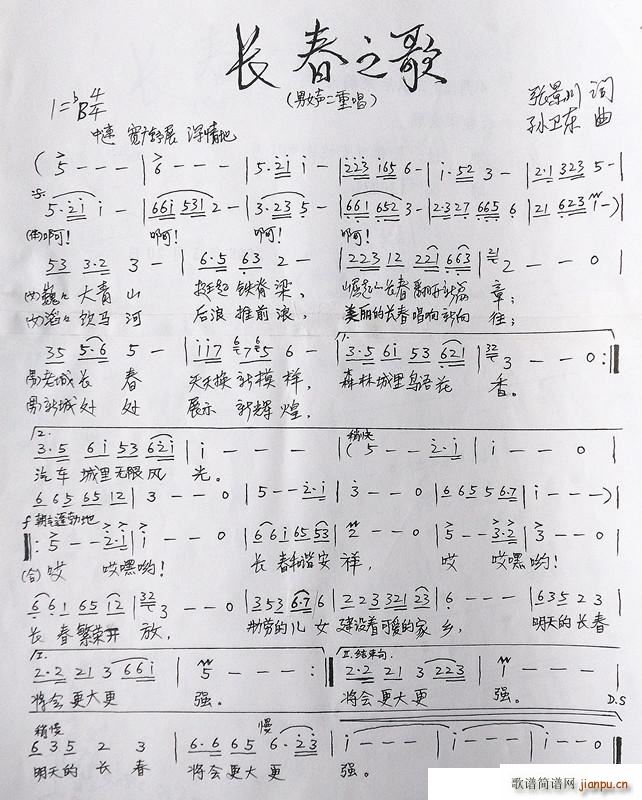 长春之歌
(男女声二重唱)
张景川 词
孙卫东 曲
1=♭B 4/4
中速 宽广舒展 深情地
( 5 - - - | 6 - - - | 5·2i i - | 223 165 6 - | i·52 3 - | 2·1 323 5 -
5·2i i - | 66i 531 2 - | 3·23 5 - | 661 652 3 - | 2·327 665 6 | 21 623 i - )
啊! 啊! 啊! 啊!
53 3·2 3 - | 6·5 63 2 - | 223 12 221 663 | 2 - - 0
(女)巍巍大青山 挺起铁脊梁, 崛起的长春翻开新篇章;
(女)滔滔饮马河 后浪推前浪, 美丽的长春唱响新向往;
35 5·6 5 - | ii7 6765 6 - | 1. 3·5 6i 53 621 | 3 - - 0 :|
(男)老城长春 天天换新模样, 森林城里鸟语花香。
(男)新城处处 展示新辉煌,
2. 3·5 6i 53 62i | i - - - | 稍快 (5 - - 2·i | i - - 0
汽车城里无限风光。
6 65 65 12 | 3 - - 0 | 5 - - 2·i | 3 - - 0 | 6 65 5 67 | i - - - )
f 朝气蓬勃地
|: 5 - - 2·i | i - - 0 | 6 6i 65 53 | 2 - - 0 | 5 - - 3·2 | 3 - - 0
(合)哎 哎嘿哟! 长春和谐安祥, 哎 哎嘿哟!
6 61 65 12 | 3 - - 0 | 353 6·7 6 | 223 321 23 | 6 - - - | 635 2 3
长春繁荣开放, 勤劳的儿女建设着可爱的家乡, 明天的长春
I. 2·2 21 3 66i | 5 - - - :| II.结束句 2·2 21 3 223 | 1 - - -
将会更大更强。 将会更大更强。 D.S
稍慢 慢
635 2 3 | 6·6 65 6·23 | i - - - | i - - - | i - - - ||
明天的长春 将会更大更强。
歌谱简谱网
www.jianpu.cn